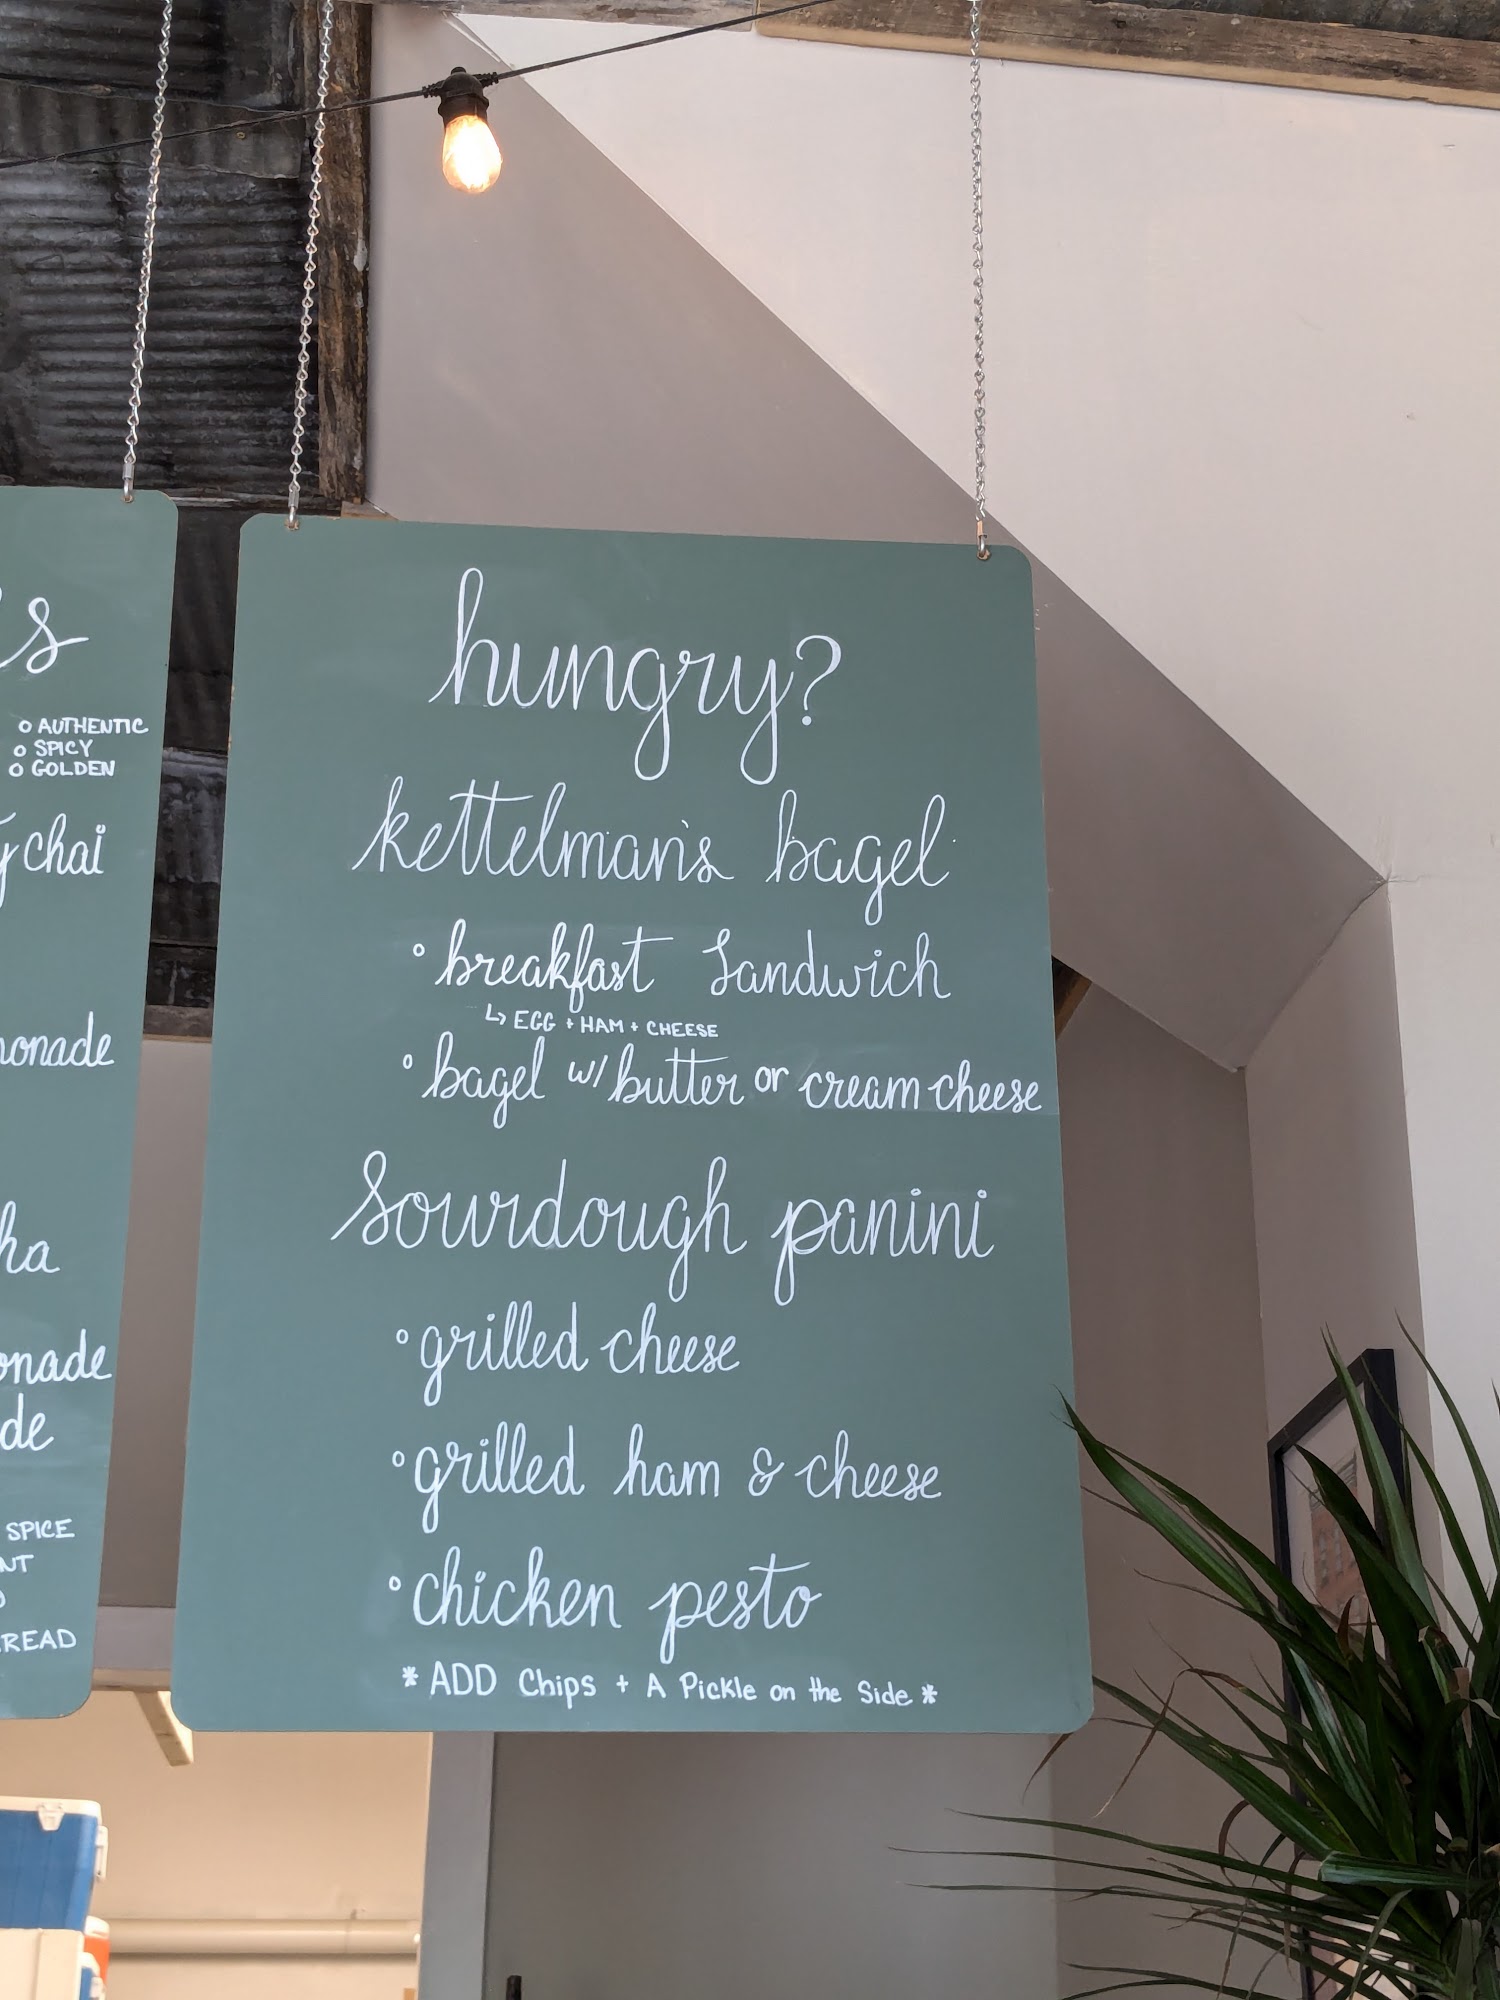 s
o AUTHENTIC
o SPICY
o GOLDEN
chai
onade
ha
onade
de
SPICE
NT
READ
hungry?
kettelman's bagel
° breakfast Sandwich
↳ EGG + HAM + CHEESE
° bagel w/ butter or cream cheese
Sourdough panini
° grilled cheese
° grilled ham & cheese
° chicken pesto
* ADD Chips + A Pickle on the Side *